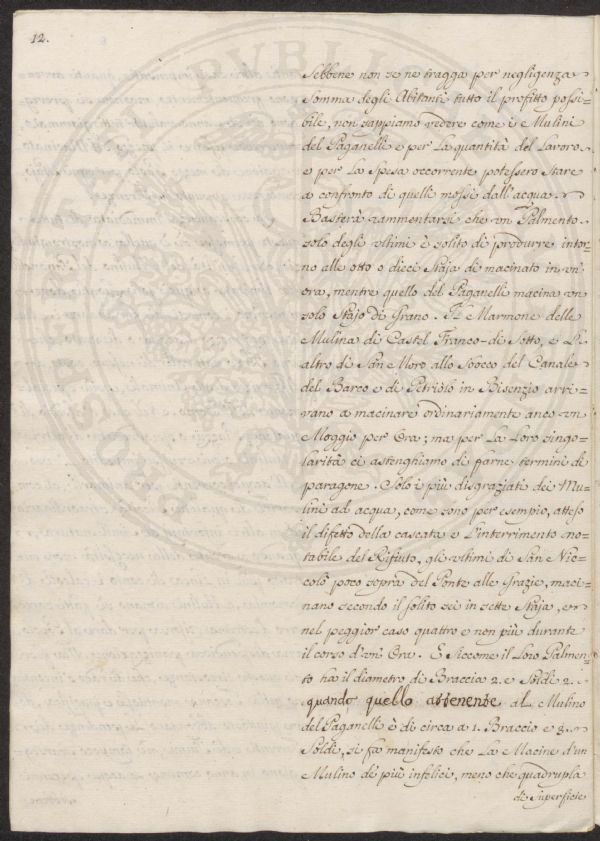 12.
Sebbene non se ne tragga per negligenza
somma degli Abitanti tutto il profitto possi=
bile, non sappiamo vedere come i Mulini
del Paganelli e per la quantità del Lavoro
e per la Spesa occorrente potessero Stare
a confronto di quelli mossi dall'acqua.
Basterà rammentarsi che un Palmento
solo degli ultimi è solito di produrre intor=
no alle otto o dieci Staja di macinato in un'
ora, mentre quello del Paganelli macina un
solo Stajo di Grano. Il Marmone delle
Mulina di Castel Franco di Sotto, e L'
altro di San Moro allo Sbocco del Canale
del Barco e di Petriolo in Bisenzio arri=
vano a macinare ordinariamente anco un
Moggio per Ora; ma per La Loro singo=
larità ci astenghiamo di farne termini di
paragone. Solo i più disgraziati dei Mu=
lini ad acqua, come sono per esempio, atteso
il difetto della cascata e L'interrimento no=
tabile del Rifiuto, gli ultimi di San Nic=
colò poco sopra del Ponte alle Grazie, maci=
nano secondo il solito sei in sette Staja, e
nel peggior caso quattro e non più durante
il corso d'un' Ora. E Siccome il Loro Palmen=
to ha il diametro di Braccia 2. e Soldi 2.
quando quello attenente al Mulino
del Paganelli è di circa a 1. Braccio e 3.
Soldi, si fa manifesto che La Macine d'un
Mulino de' più infelici, meno che quadrupla
di Superficie